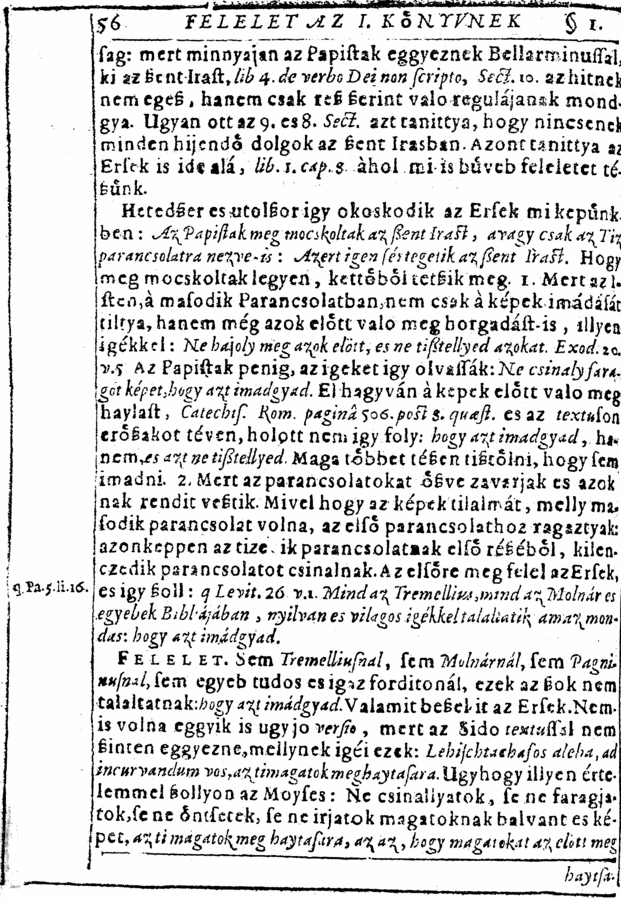 56 FELELET AZ I. KÖNYVNEK § 1.
ſag: mert minnyajan az Papiſtak eggyeznek Bellarminuſſal,
ki az ßent Iraſt, lib 4. de verbo Dei non ſcripto, Sect. 10. az hitnek
nem egeß, hanem csak reß ßerint valo regulájanak mond-
gya. Ugyan ott az 9. es 8. Sect. azt tanittya, hogy nincsenek
minden hijendő dolgok az ßent Irasban. Azont tanittya az
Erſek is ide alá, lib. 1. cap. 8. àhol mi-is bűveb feleletet té-
ßűnk.
Hetedßer es utolßor igy okoskodik az Erſek mi kepűnk-
ben: Az Papiſtak meg mocskoltak az ßent Iraſt, avagy csak az Tiz
parancsolatra nezve-is: Azert igen ſértegetik az ßent Iraſt. Hogy
meg mocskoltak legyen, kettőből tetßik meg. 1. Mert az I-
ſten, à maſodik Parancsolatban, nem csak à képek imádáſát
tiltya, hanem még azok előtt valo meg horgadáſt-is, illyen
igékkel: Ne hajoly meg azok elött, es ne tißtellyed azokat. Exod. 20.
v. 5 Az Papiſtak penig, az igeket igy olvaſſák: Ne csinaly fara-
got képet, hogy azt imadgyad. El hagyván à kepek előtt valo meg
haylaſt, Catechiſ. Rom. paginâ 506. poſt 8. quæſt. es az textuſon
erőßakot téven, holott nem igy foly: hogy azt imadgyad, ha-
nem, es azt ne tißtellyed. Maga többet téßen tißtőlni, hogy ſem
imadni. 2. Mert az parancsolatokat őßve zavarjak es azok
nak rendit veßtik. Mivel hogy az képek tilalmát, melly ma-
ſodik parancsolat volna, az elſő parancsolathoz ragaſztyak:
azonkeppen az tize ik parancsolatnak elſő réßéből, kilen-
czedik parancsolatot csinalnak. Az elſőre meg felel az Erſek,
q. Pa. 5. li. 16.
es igy ßoll: q Levit. 26 v. 1. Mind az Tremellius, mind az Molnár es
egyebek Bibliájában, nyilvan es vilagos igékkel talaltatik amaz mon-
das: hogy azt imádgyad.
FELELET. Sem Tremelliuſnal, ſem Molnárnál, ſem Pagni-
nuſnal, ſem egyeb tudos es igaz forditonál, ezek az ßok nem
talaltatnak: hogy azt imádgyad. Valamit beßel it az Erſek. Nem-
is volna eggyik is ugy jo verſio, mert az Sido textuſſal nem
ßinten eggyezne, mellynek igéi ezek: Lehiſchtachaſos aleha, ad
incurvandum vos, az ti magatok meg haytaſara. Ugy hogy illyen érte-
lemmel ßollyon az Moyſes: Ne csinallyatok, ſe ne faragja-
tok, ſe ne öntſetek, ſe ne irjatok magatoknak balvant es ké-
pet, az ti magatok meg haytaſara, az az, hogy magatokat az elött meg
haytſa-